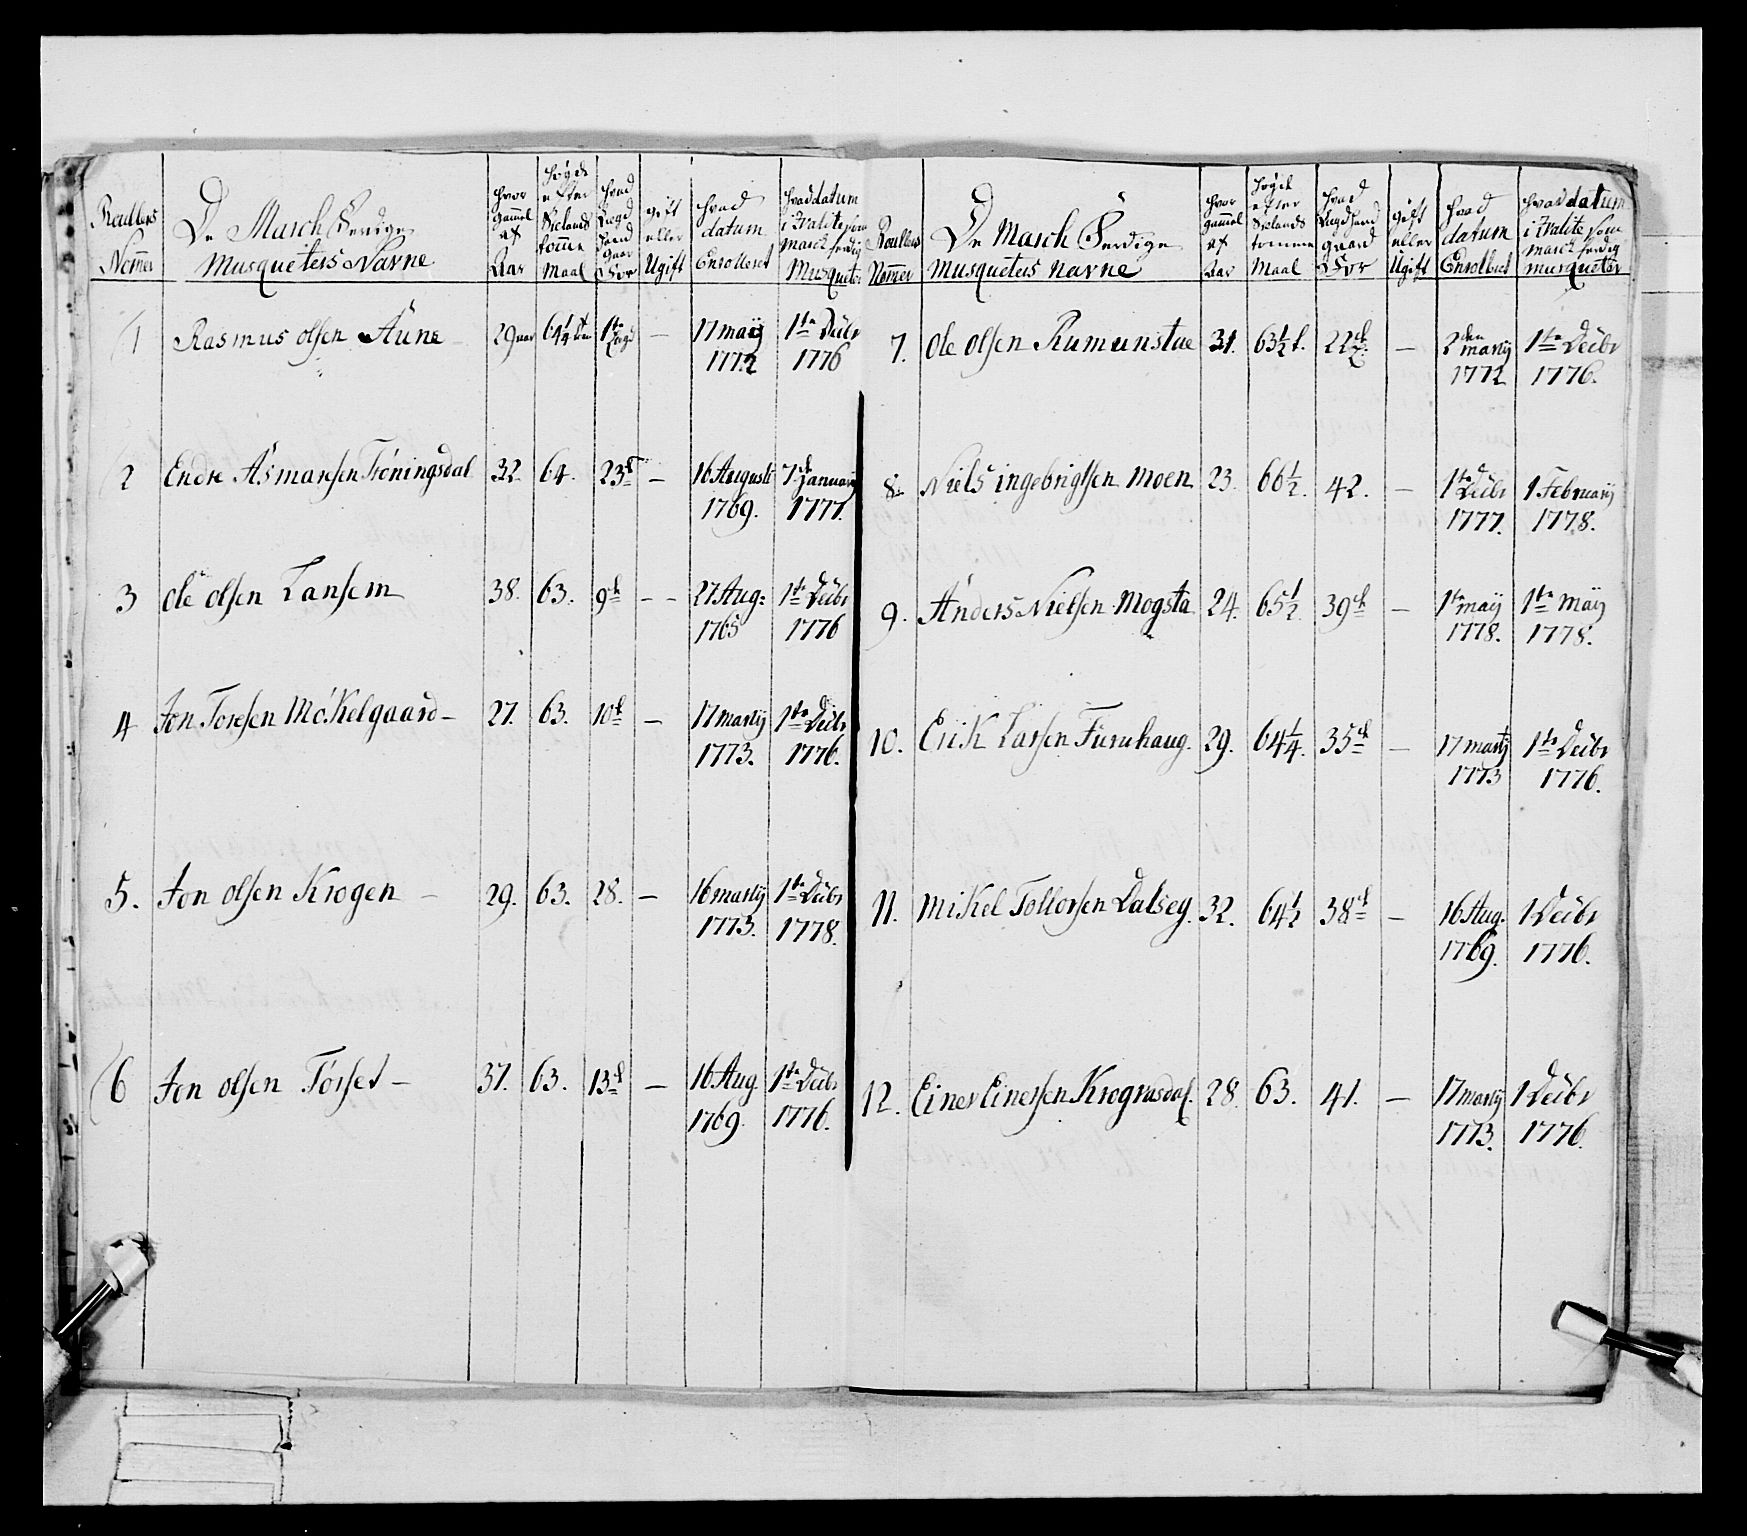 Roullens Nommer | De March Ferdige Musqueters Navne | hvor gammel af Aar | høyde efter Sielands tomme Maal | hvad Lægd hand gaar For | gift eller Ugift | hvad datum Enrolleret | hvad datum i Kvalite som march ferdig Musquetr:
1 | Rasmus olsen Aune | 29 aar | 64¼ tom | 1te Lægd | — | 17 maij 1772 | 1te Decbr 1776
2 | Endre Asmansen Tröningsdal | 32 | 64. | 23d | — | 16 Augusti 1769. | 7de Januarij 1777.
3 | ole olsen Lansem | 38. | 63. | 9de | — | 27 Aug: 1765 | 1te Decbr 1776
4 | Jon Toresen Mökelgaard | 27. | 63. | 10d | — | 17 martij 1773. | 1te Decbr 1776.
5. | Jon olsen Krogen | 29. | 63. | 28. | — | 16 martij 1773. | 1te Decbr 1778.
6 | Jon olsen Törset | 37. | 63. | 13d | — | 16 Aug 1769. | 1te Decbr 1776.
Roullens Nommer | De March Ferdige Musqueters navne | hvor gammel af Aar | höyde efter Sielands tomme Maal | hvad Lægd hand gaard For | gift eller Ugift | hvad datum Enrolleret | hvad datum i Kvalite som march ferdig musquetær
7. | ole olsen Rumunstue | 31. | 63½ t. | 22d L. | — | 2den martij 1772 | 1te Decbr 1776.
8. | Niels ingebrigtsen moen | 23. | 66½. | 42. | — | 1te Decbr 1777. | 1 Februarij 1778.
9. | Anders Nielsen Mogsta | 24. | 65½. | 39d | — | 1te maij 1778. | 1te Maij 1778.
10. | Erik Larsen Furuhaug. | 29. | 64¼. | 35d | — | 17 martij 1773 | 1te Decbr 1776.
11. | Mikel Tollorsen Dalseg. | 32. | 64½ | 38d | — | 16 Aug: 1769. | 1 Decbr 1776.
12. | Einer Einersen Krognasdal. | 28. | 63. | 41. | — | 17 martij 1773. | 1 Decbr 1776.